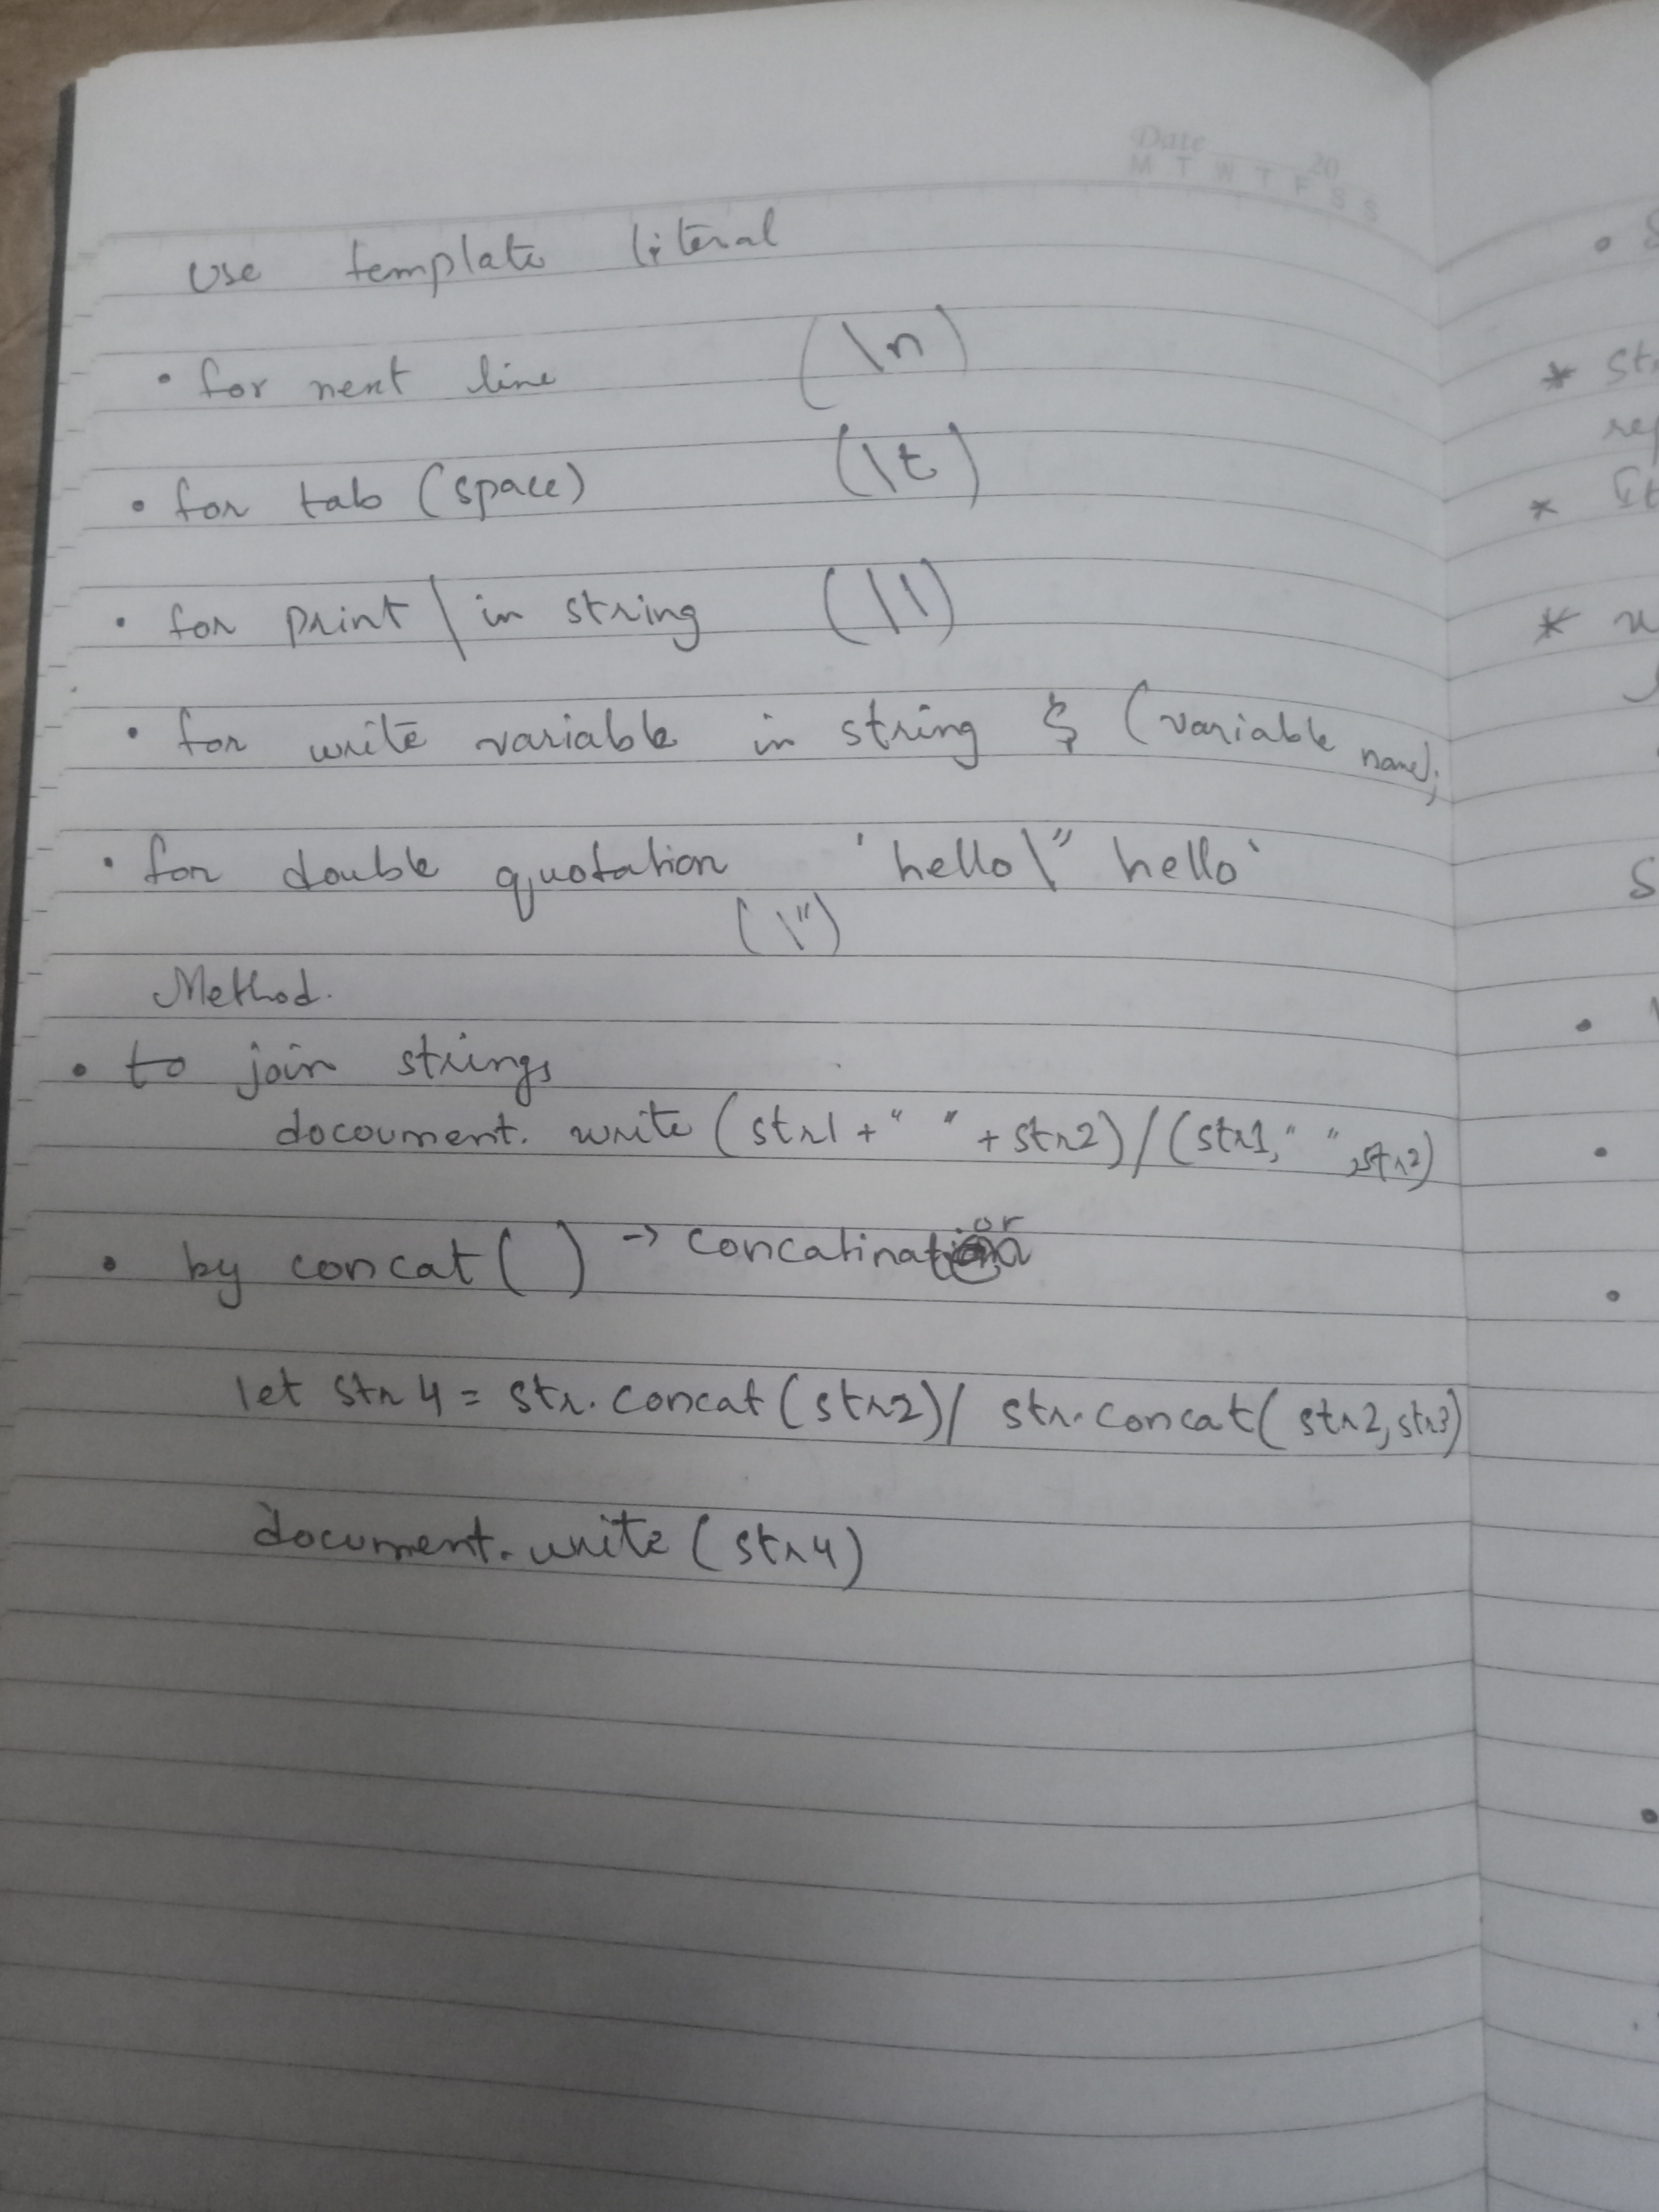 Date 20
M T W T F S S
Use template literal
• for next line (\n)
• for tab (space) (\t)
• for print \ in string (\\)
• for write variable in string $ (variable name);
• for double quotation 'hello\" hello`
(\")
Method.
• to join strings
docoument. write (str1 + " " + str2) / (str1, " ", str2)
or
• by concat ( ) → concatination
let str 4 = str. concat (str2) / str. concat ( str2, str3)
document. write (str4)